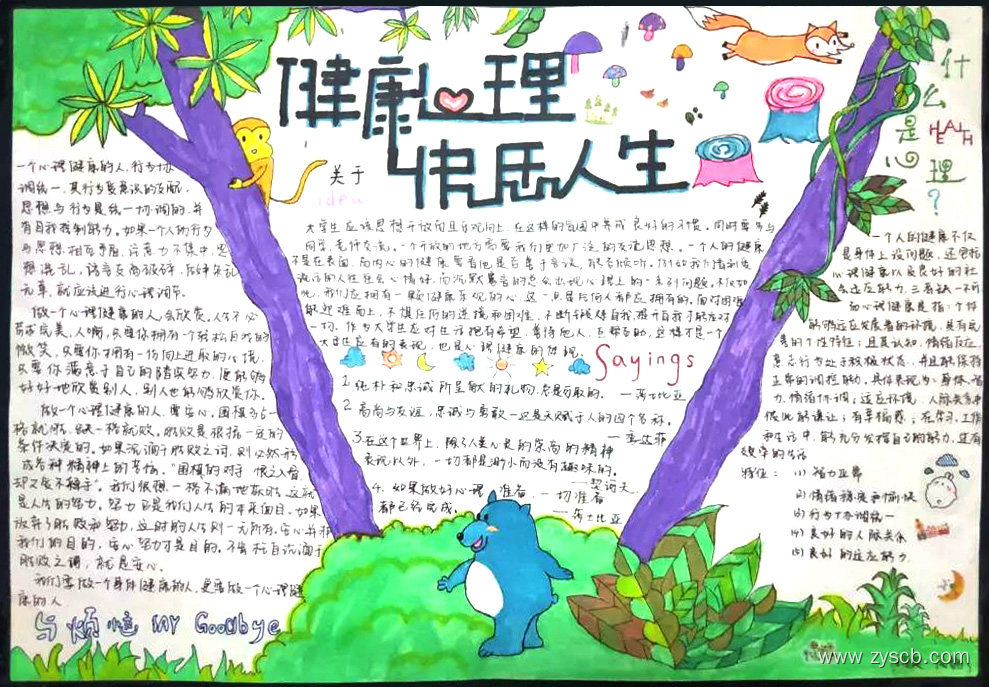 健康心理
快乐人生
关于
idea
什么是心理?
HEALTH
一个心理健康的人,行为协
调统一,其行为受意识的支配,
思想与行为是统一协调的,并
有自我控制能力。如果一个人的行为
与思想相互矛盾,注意力不集中,思
想混乱,语言支离破碎,
无章,就应该进行心理调节。
做一个心理健康的人,会欣赏,人不必
苛求完美,人啊,只要你拥有一个轻松自我的
微笑,只要你拥有一份向上进取的心境,
只要你满意于自己的踏实努力,便能够
好好地欣赏别人,别人也能够欣赏你。
做一个心理健康的人,要安心,围棋占61
格就胜,缺一格就败。胜败是根据一定的
条件决定的。如果沉溺于胜败之词,则必然形
成各种精神上的苦恼。
我们很想一格不漏地取胜,这就
是人生的努力,努力也是我们人生的本来面目。如果
放弃了胜败和努力,这时的人生则一无所有,安心并非
我们的目的,安心努力才是目的。不安于自沉溺于
胜败之词,就是安心。
我们要做一个身体健康的人,更要做一个心理健
康的人
与烦恼 MY Goodbye
大学生应该思想开放而且乐观向上,在这样的氛围中养成良好的习惯。同时要多与
同学,老师交流。一个开放的地方需要我们更加广泛的交流思想。一个人的健康
不是在表面,而内心的健康要看他是否善于言谈,能否倾听。例如我们看到爱
说话的人往往会心情好,而沉默寡言的总会出现心理上的一系列问题,不仅如
此,我们应拥有一颗健康乐观的心,这一点是任何人都应拥有的。面对困难
能迎难而上,不惧任何的逆境和困难,不断持续自我提升自我才能应对
一切。作为大学生应对生活抱有希望,善待他人,互帮互助,这样才是一个
大学生应有的表现,也是心理健康的体现。
Sayings
1. 纯朴和忠诚所呈献的礼物,总是可取的。—莎士比亚
2 高尚与友谊,忠诚与勇敢一这是天赋于人的四个名称。
—李达菲
3.在这个世界上,除了人类心灵的崇高的精神
表现以外,一切都是渺小而没有趣味的。
—契诃夫
4. 如果做好心理准备,一切准备
都已经完成。
—莎士比亚
一个人的健康不仅
是身体上没问题,还包括
心理健康以及良好的社
会适应能力,三者缺一不可
而心理健康是指:个体
能够适应发展着的环境,具有完
善的个性特征;且其认知,情绪反应,
意志行为处于积极状态,并且能保持
正常的调控能力。具体表现为:身体、智
力、情绪协调;适应环境,人际关系中
彼此能谦让;有幸福感;在学习、工作
和生活中,能充分发挥自己的能力,过有
效率的生活
特征:(1) 智力正常
(2) 情绪稳定和愉快
(3) 行为协调统一
(4) 良好的人际关系
(5) 良好的适应能力
www.zyscb.com